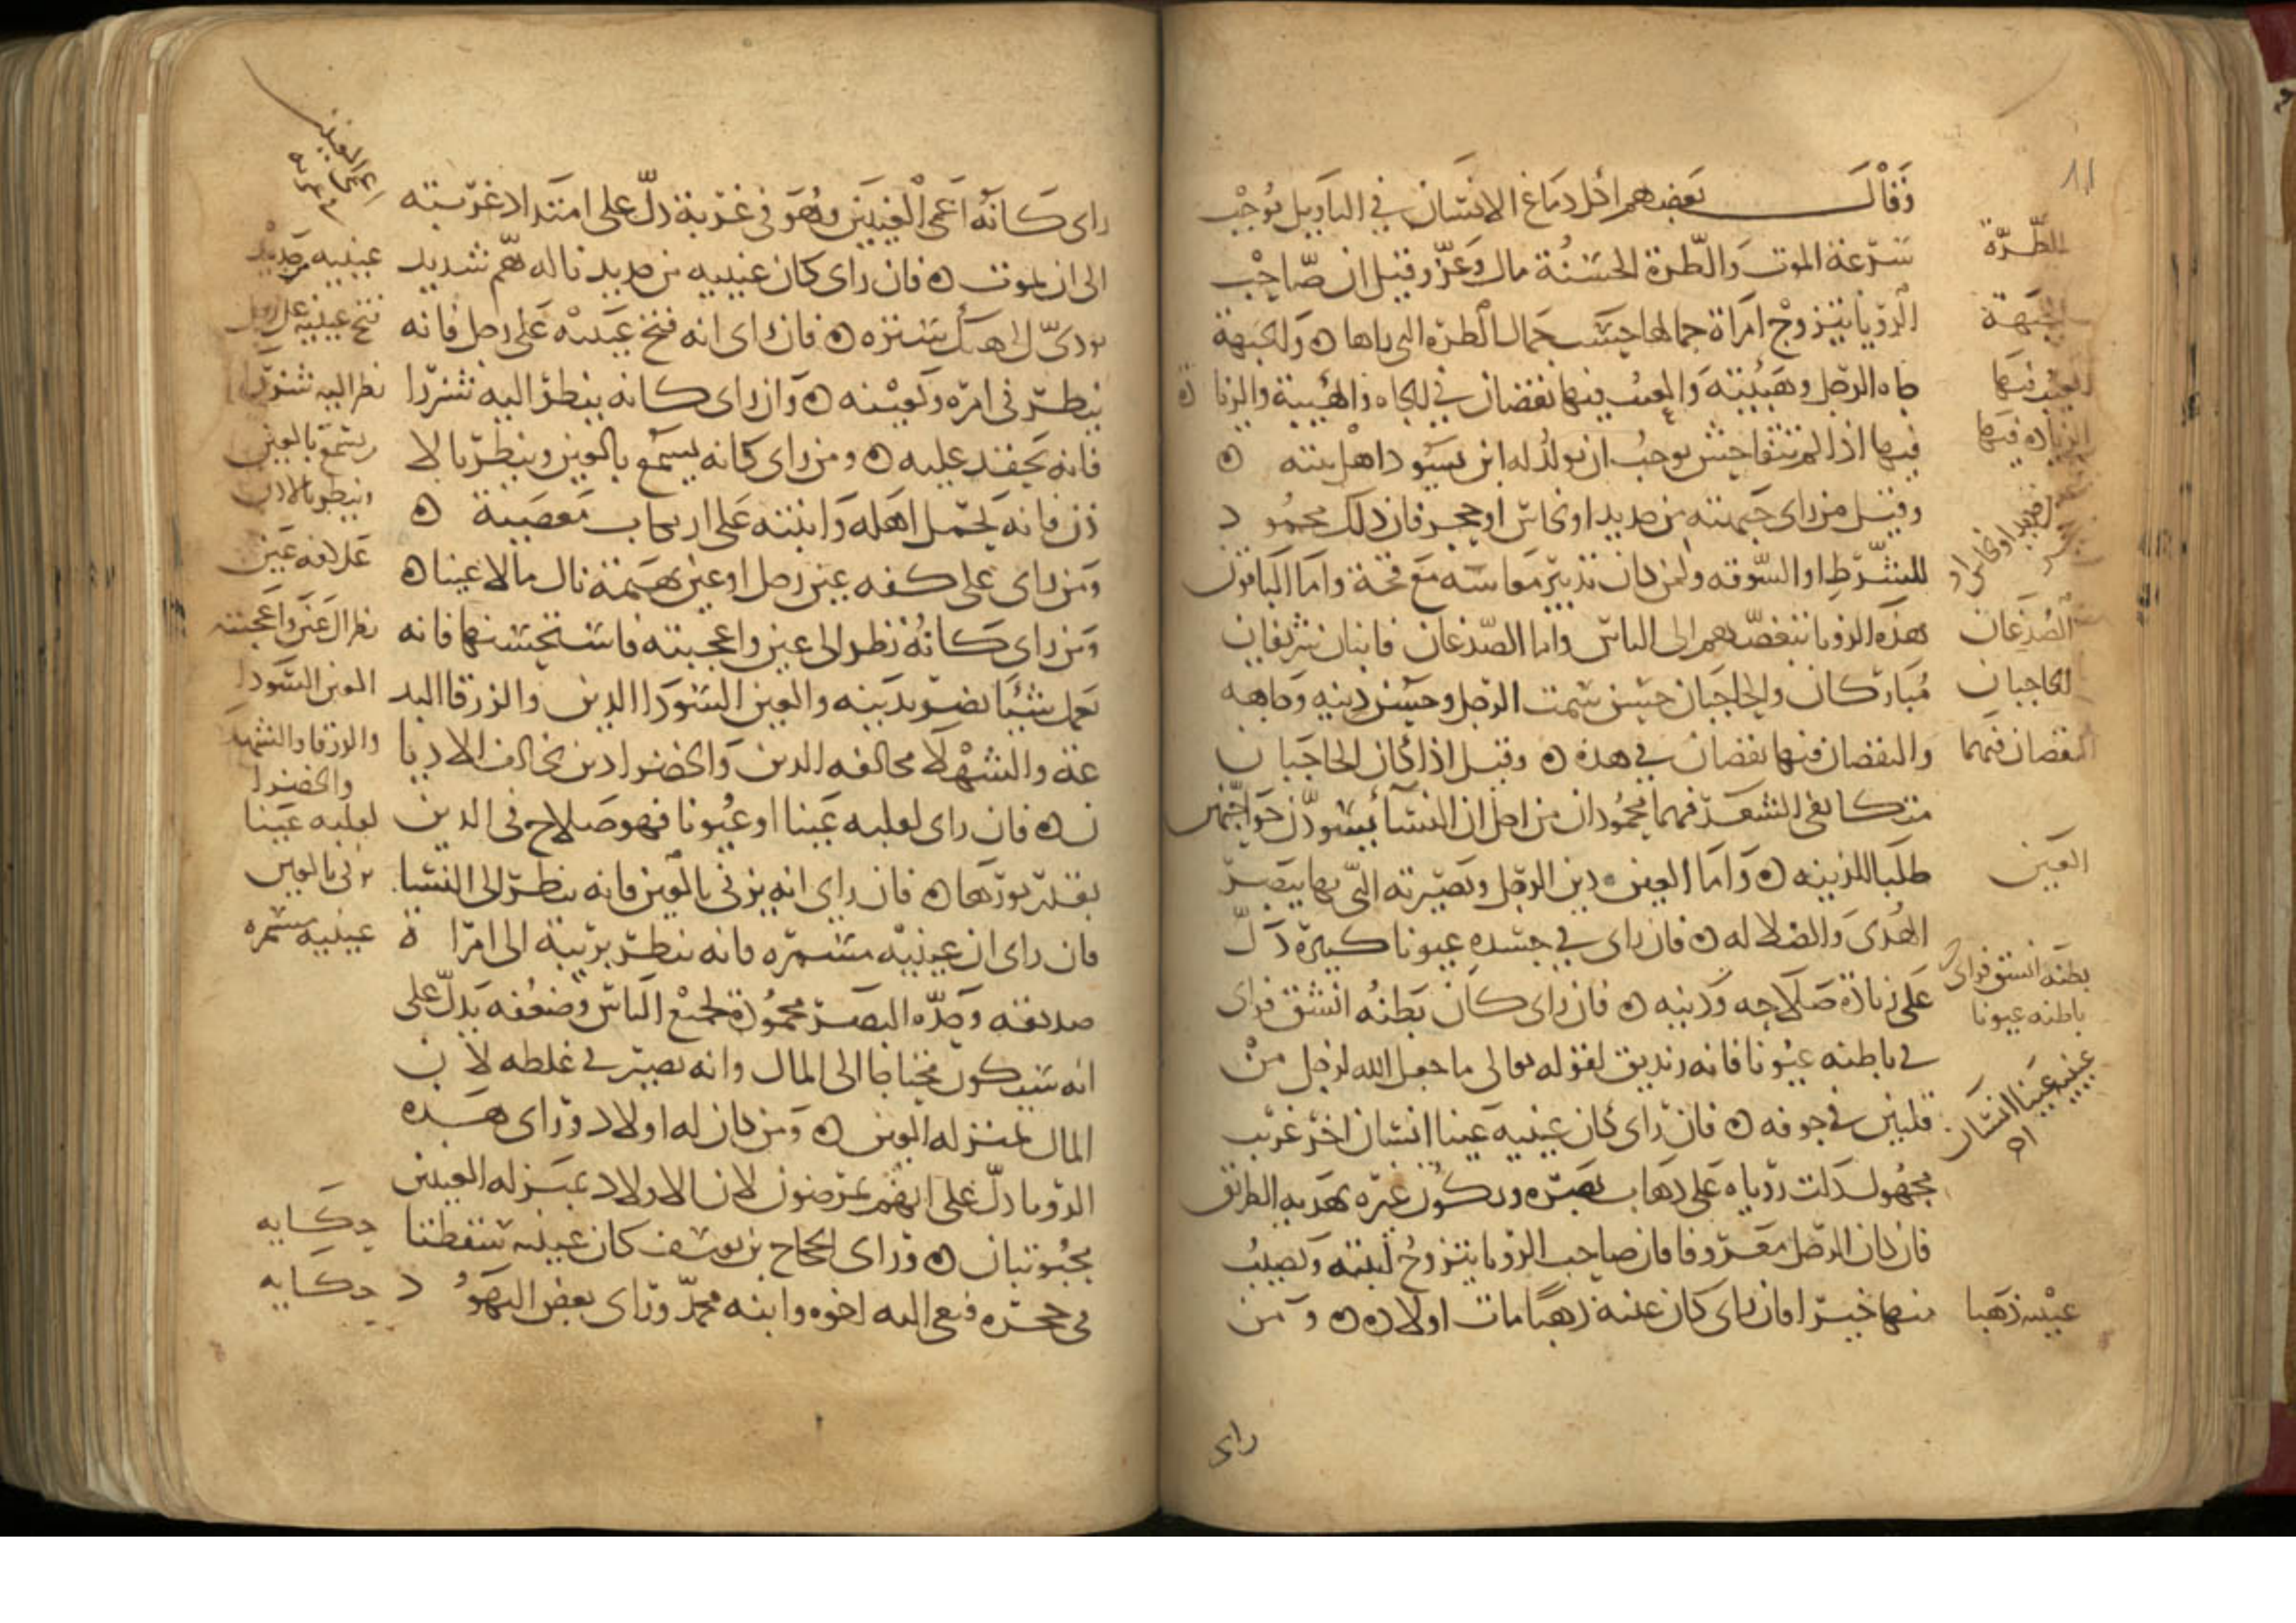 وقال بعضهم اكل دماغ الانسان في التاويل يوجب
سرعة الموت والطرة الحسنة مال وعز وقيل ان صاحب
الرؤيا يتزوج امراة جمالها حسب جمال الطرة التي راها ه والجبهة
جاه الرجل وهيبته والعيب فيها نقصان في الجاه والهيبة والزيادة
فيها اذا لم تتفاحش يوجب ان يولد له ابن يسود اهل بيته ه
وقيل من راى جبهته من حديد او نحاس او حجر فان ذلك محمود
للشرط او السوقه ولمن كان تدبير معاشه مع قحة واما الباقون
هذه الرؤيا تبغضهم الى الناس واما الصدغان فابنان شريفان
مباركان والحاجبان حسن سمت الرجل وحسن دينه وجاهه
والنقصان فيها نقصان في هذه ه وقيل اذا كان الحاجبان
متكاثفي الشعر فهما محمودان من اجل ان النساء يسودن حواجبهن
طلبا للزينه ه واما العين دين الرجل وبصيرته التي بها يبصر
الهدى والضلاله ه فان راى في جسده عيونا كثيرة دل
على زيادة صلاحه ودينه ه فان راى كان بطنه انشق فراى
في باطنه عيونا فانه زنديق لقوله تعالى ما جعل الله لرجل من
قلبين في جوفه ه فان راى كان عينيه عينا انسان اخر غريب
مجهول دلت رؤياه على ذهاب بصره ويكون غيره يهديه الطريق
فان كان الرجل معروفا فان صاحب الرؤيا يتزوج ابنته ويصيب
منها خيرا فان راى كان عينيه ذهبا مات اولاده ه ومن
راى
١١
الطرة
الجبهة
العيب فيها
الزيادة فيها
من حديد او نحاس او حجر
الصدغان
الحاجبان
النقصان فيهما
العين
بطنه انشق فراى
باطنه عيونا
عينيه عينا انسان
عينيه ذهبا
راى كانه اعمى العينين وهو في غربة دل على امتداد غربته
الى ان يموت ه فان راى كان عينيه من حديد ناله هم شديد
يودي الى هتك ستره ه فان راى انه فتح عينيه على رجل فانه
ينظر في امره ويعينه ه وان راى كانه ينظر اليه شزرا
فانه يحقد عليه ه ومن راى كانه يسمع بالعين وينظر بالا
ذن فانه يحمل اهله وابنته على ارتكاب معصيية ه
ومن راى على كفه عين رجل او عين بهيمة نال مالا عينا ه
ومن راى كانه نظر الى عين واعجبته فاستحسنها فانه
يعمل شيئا يضر بدينه والعين السودا الدين والزرقا البد
عة والشهلا مخالفه الدين والخضرا دين يخالف الاديا
ن ه فان راى لقلبه عينا او عيونا فهو صلاح في الدين
بقدر نورها ه فان راى انه يزني بالعين فانه ينظر الى النسا
فان راى ان عينيه مسمره فانه ينظر بريبة الى امراة
صديقه وحدة البصر محمودة لجميع الناس وضعفه يدل على
انه سيكون محتاجا الى المال وانه يصير في غلطه لان
المال بمنزله العين ه ومن كان له اولاد وراى هذه
الرؤيا دل على انهم يمرضون لان الاولاد بمنزله العينين
محبوبتان ه وراى الحجاج بن يوسف كان عينيه سقطتا
في حجره فنعي اليه اخوه وابنه محمد وراى بعض اليهود
اعمى العينين
عينيه من حديد
فتح عينيه على رجل
نظر اليه شزرا
يسمع بالعين
وينظر بالاذن
على كفه عين
نظر الى عين واعجبته
العين السودا
والزرقا والشهلا
والخضرا
لقلبه عينا
يزني بالعين
عينيه مسمره
حكايه
حكايه